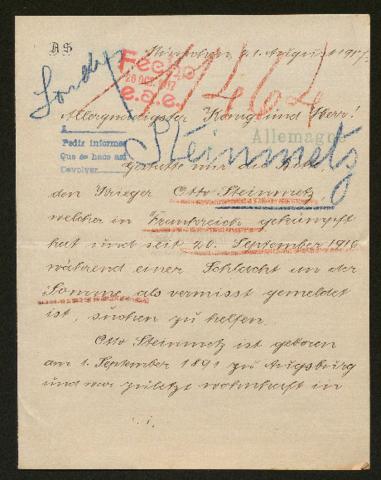 A S
München, 21. August 1917.
Fecho
26 OCT. 1917
e.a.e.
41464
Allergnädigster König und Herr!
A
Pedir informes
Que se hace así
Devolver
Allemagne
Steinmetz
Gestatte mir die Bitte
den Krieger Otto Steinmetz
welcher in Frankreich gekämpft
hat und seit 20. September 1916
während einer Schlacht an der
Somme als vermisst gemeldet
ist, suchen zu helfen.
Otto Steinmetz ist geboren
am 1. September 1891 zu Augsburg
und war zuletzt wohnhaft in